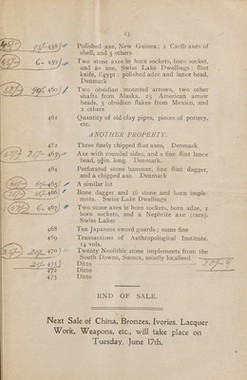 23
458 Polished axe, New Guinea; 2 Carib axes of
shell, and 3 others
459 Two stone axes in horn sockets, horn socket,
and an axe, Swiss Lake Dwellings; flint
knife, Egypt; polished adze and lance head,
Denmark
460 Two obsidian mounted arrows, two other
shafts from Alaska, 25 American arrow
heads, 5 obsidian flakes from Mexico, and
2 others
461 Quantity of old clay pipes, pieces of pottery,
etc.
ANOTHER PROPERTY.
462 Three finely chipped flint axes, Denmark
463 Axe with rounded sides, and a fine flint lance
head, Denmark.
464 Perforated stone hammer, fine flint dagger,
and a chipped axe. Denmark
465 A similar lot
466 Bone dagger and 16 stone and horn imple-
ments. Swiss Lake Dwellings
467 Two stone axes in horn sockets, horn adze, 2
horn sockets, and a Nephrite axe (rare).
Swiss Lakes
468 Ten Japanese sword guards; some fine
469 Transactions of Anthropological Institute,
14 vols.
470 Twenty Neolithic stone implements from the
South Downs, Sussex, mostly localised
471 Ditto
472 Ditto
473 Ditto
END OF SALE.
Next Sale of China, Bronzes, Ivories, Lacquer
Work, Weapons, etc., will take place on
Tuesday, June 17th.